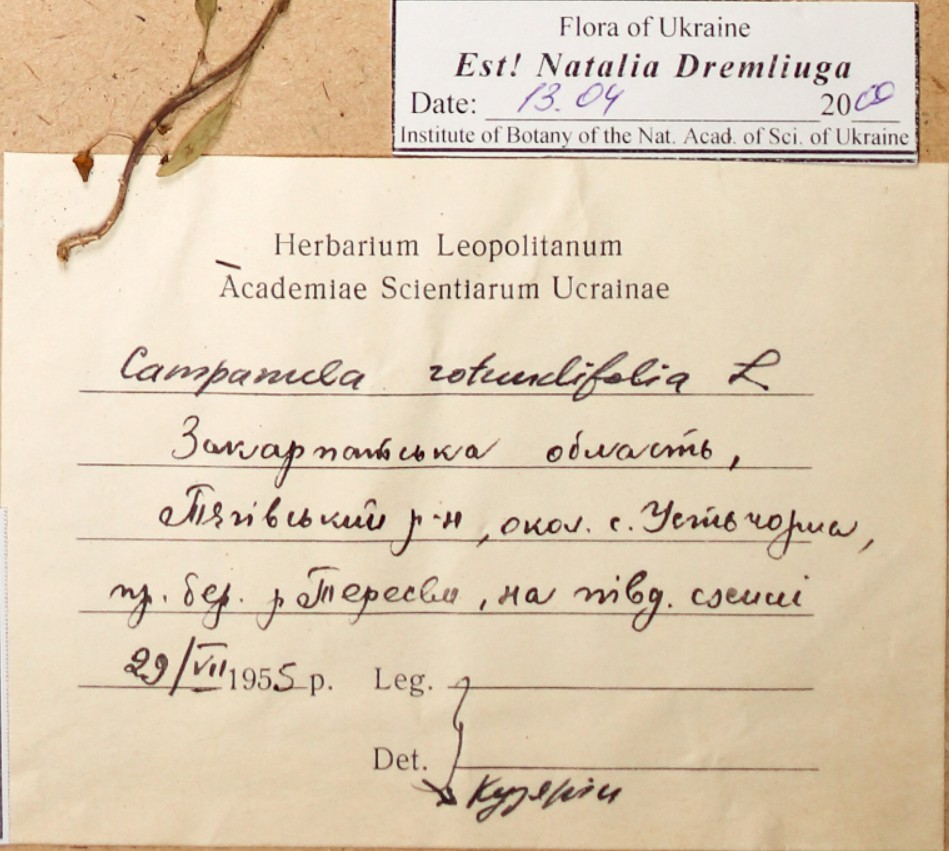 Flora of Ukraine
Est! Natalia Dremliuga
Date: 13.04 2000
Institute of Botany of the Nat. Acad. of Sci. of Ukraine
Herbarium Leopolitanum
Academiae Scientiarum Ucrainae
Campanula rotundifolia L
Закарпатська область,
Тячівський р-н, окол. с. Усть чорна,
пр. бер. р Тересви, на півд. схилі
29/VII 1955 р. Leg.
Det.
Кузярін